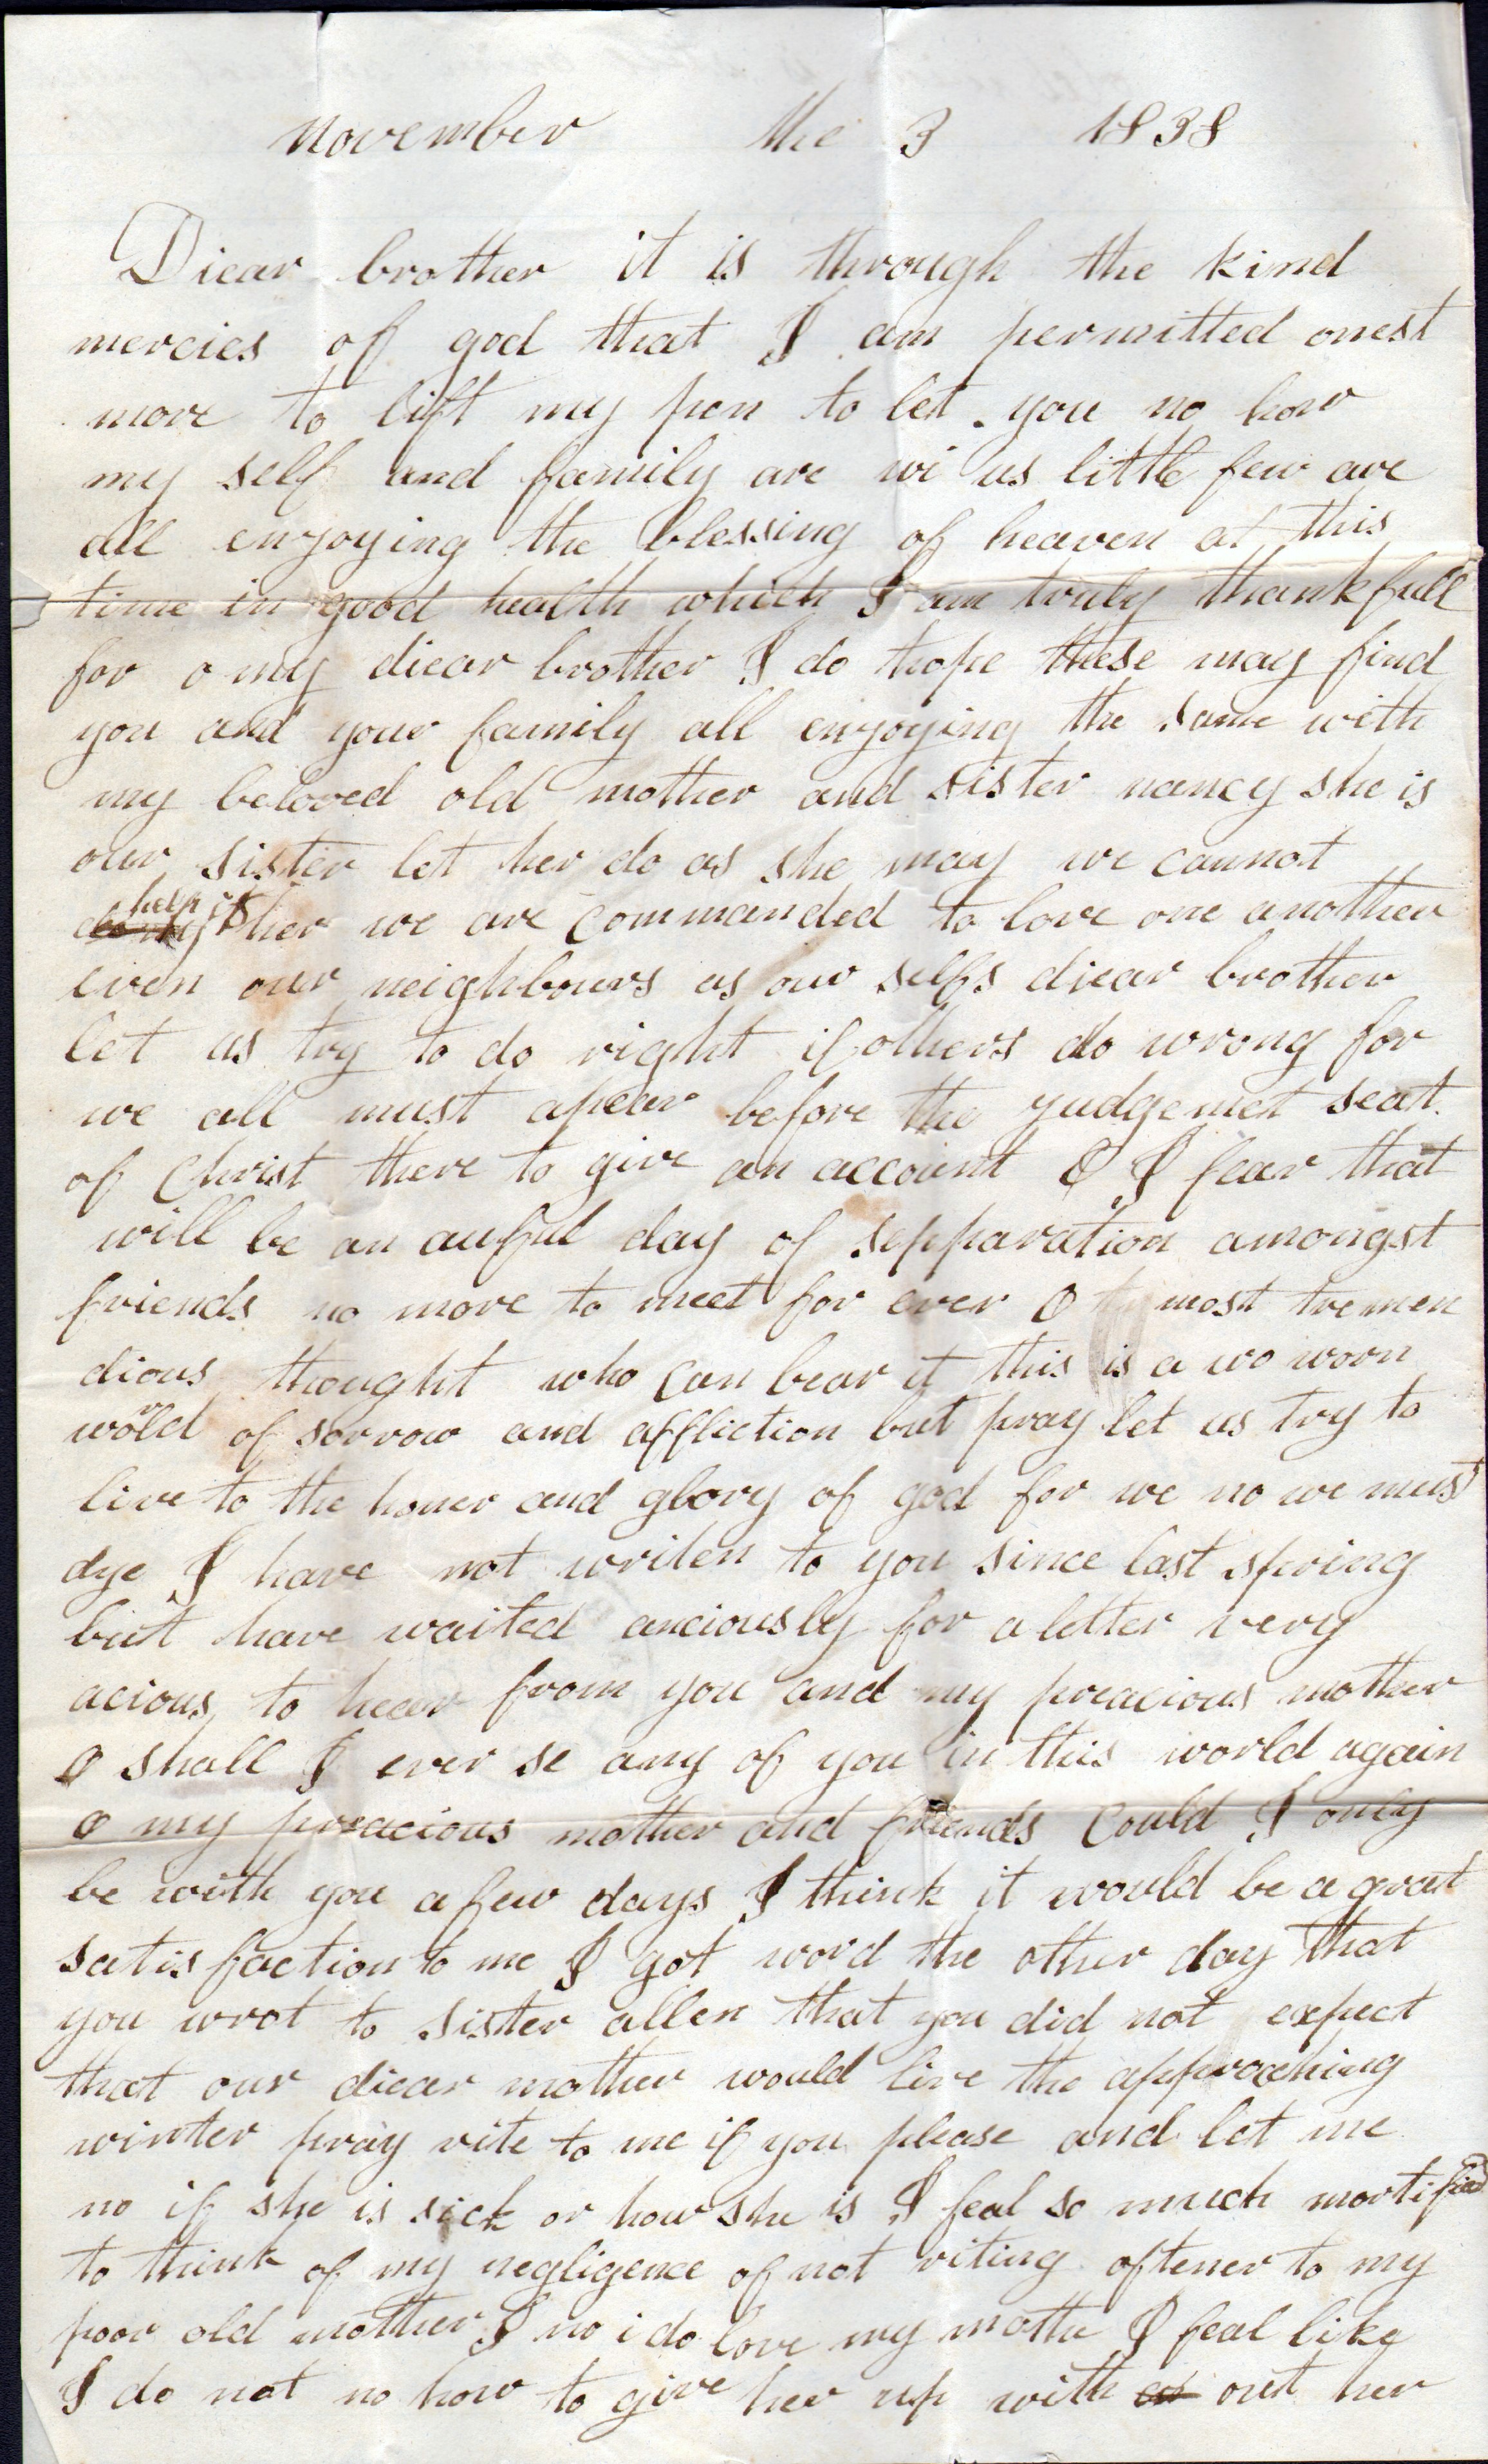 November the 3 1838
Diear brother it is through the kind
mercies of god that I am permitted onest
more to lift my pen to let you no how
my self and family are wi us little few are
all enjoying the blessing of heaven at this
time in good health which I am truly thankfull
for o my diear brother I do hope these may find
you and your family all enjoying the same with
my beloved old mother and sister nancy she is
our sister let her do as she may we cannot
help it
her we are commanded to love one another
even our neighbours as our selfs diear brother
let us try to do right if others do wrong for
we all must apear before the judgemet seat
of Christ there to give an account O I fear that
will be an auful day of sepparation amongst
friends no more to meet for ever O most tremen
dious thought who can bear it this is a wo worn
world of sorrow and affliction but pray let us try to
live to the honer and glory of god for we no we must
dye I have not writen to you since last spring
but have waited anciously for a letter very
acious to hear from you and my preacious mother
O shall I ever se any of you in this world again
o my preacious mother and friends Could I only
be with you a few days I think it would be a great
satisfaction to me I got word the other day that
you wrot to sister allen that you did not expect
that our diear mother would live the approaching
winter pray rite to me if you please and let me
no if she is sick or how she is I feal so much mortified
to think of my negligence of not riting oftener to my
poor old mother I no i do love my mothe I feal like
I do not no how to give her up with out her